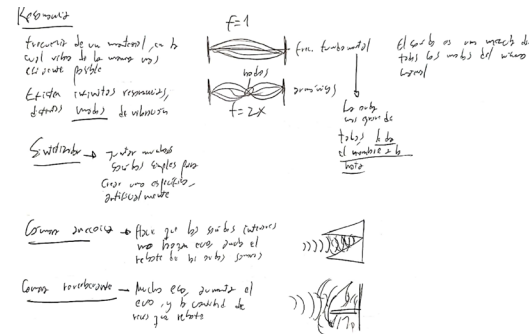 Resonancia
frecuencia de un material, en la
cual vibra de la manera mas
eficiente posible
Existen infinitas resonancias,
modos de vibración
f=1
frec. fundamental
nodos
armónicos
f=2x
La onda
mas grande de
todas
le da
el nombre a la
nota
El sonido es una mezcla de
todos los modos del mismo
Sintetizador → juntar muchos
sonidos simples para
crear uno específico,
artificialmente
Camara anecoica → Hace que los sonidos interiores
no hagan eco, anula el
rebote de las ondas sonoras
Camara reverberante → Mucho eco, aumenta el
eco, y la cantidad de
veces que rebota